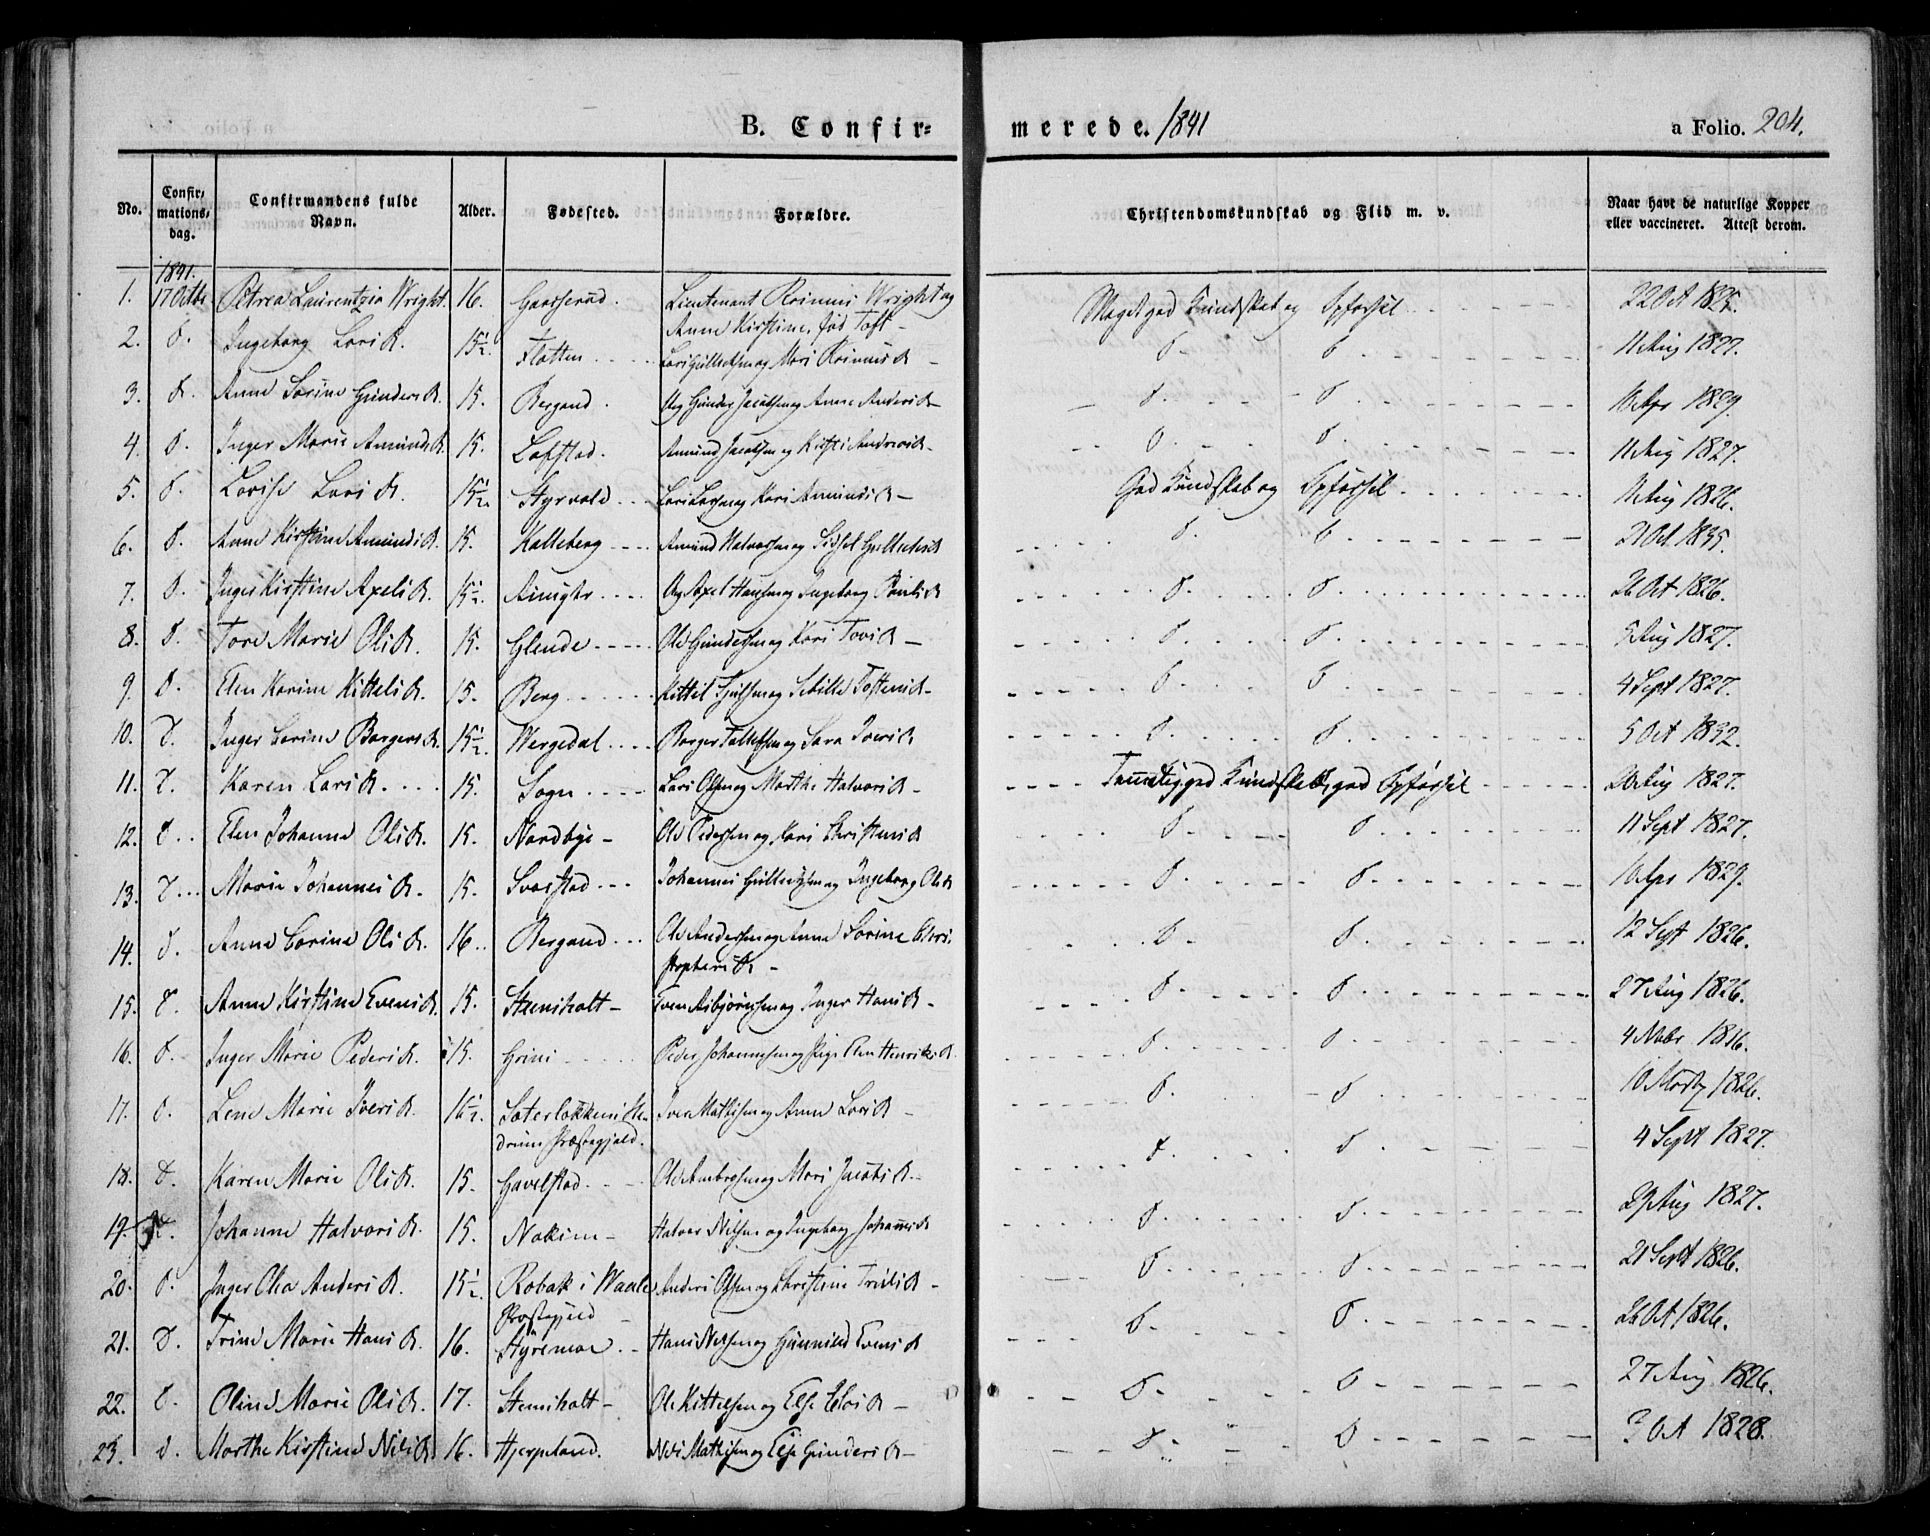 B. Confir=
merede. 1841
a Folio. 204.
No.
Confir-
mations-
dag.
Confirmandens fulde
Navn.
Alder.
Fødested.
Forældre.
Christendomskundskab og Flid m. v.
Naar havt de naturlige Kopper
eller vaccineret. Attest derom.
1841.
1. 17 Octbr Petrea Laurentzia Wright. 16. Lieutenant Wright og Meget god Kundskab og Opførsel 22 Oct 1825.
Anne Kirstine, fød Toft -
2. D. Ingeborg Larsd. 15½. Flatten Lars og Mari D. D. 11 Aug 1827.
3. D. Anne Sorine Gundersd. 15. Bergand. Gunder Jacobsen og Anne Andersd D. D. 10 Apr 1829.
4. D. Inger Marie Amundsd. 15. Lofstad. Amund Jacobsen og Kirsti Andersd - D. D. 11 Aug 1827.
5. D. Lovise Larsd. 15½ Styrvold Lars Larsen og Kari Amundsd - God Kundskab og Opførsel 11 Aug 1826.
6. D. Anne Kirstine Amundsd. 15. Kalleberg Amund Halvorsen og Sidsel D. D. 2 Oct. 1835.
7. D. Inger Kirstine Axelsd. 15½. Axel Hansen og Ingeborg Paulsd D. D. 26 Oct 1826.
8. D. Tore Marie Olsd. 15. Glende Ole Gundersen og Kari D. D. 5 Aug 1827.
9. D. Elen Karine Kittelsd. 15. Berg Kittel og Sibille D. D. 4 Sept 1827.
10. D. Inger Borgersd. 15½. Wergedal Borger og Sara Iversd D. D. 5 Oct 1832.
11. D. Karen Larsd. 15. Sogn Lars Olsen og Marthe Halvorsd - Temmelig god Kundskab, god Opførsel 20 Aug 1827.
12. D. Elen Johanne Olsd. 15. Nordbye - Ole Pedersen og Kari Christensd D. D. 11 Sept 1827.
13. D. Marie Johannesd. 15. Svarstad Johannes og Ingeborg Olsd D. D. 10 Apr 1829.
14. D. Anne Olsd. 16. Bergand Ole Andersen og Anne Sorine Chri- D. D. 12 Sept 1826.
stophersd -
15. D. Anne Kirstine Evensd. 15. Steensholt - Even Asbjørnsen og Inger Hansd - D. D. 27 Aug 1826.
16. D. Inger Marie Pedersd. 15. Grini Peder Johannesen og Pige Elen Henriksd. D. D. 4 Novbr 1836.
17. D. Lene Marie Iversd. 16½. Iver Mathisen og Anne Larsd - D. D. 10 1826.
Præstegjeld.
18. D. Karen Marie Olsd. 15. Gavelstad Ole og Mari Jacobsd D. D. 4 Sept 1827.
19. D. Johanne Halvorsd. 15. Halvor Nilsen og Ingeborg Johannesd D. D. 29 Aug 1827.
20. D. Inger Olea Andersd. 15½. Robak i Waale Anders Olsen og Christine D. D. 21 Sept 1826.
Præstegjeld -
21. D. Trine Marie Hansd. 16. Styremoe Hans Nilsen og Gunnild Evensd D. D. 26 Oct 1826.
22. D. Oline Marie Olsd. 17. Steensholt - Ole Kittelsen og Else D. D. 27 Aug 1826.
23. D. Marthe Kirstine Nilsd. 16. Hjerpeland. Nils Mathisen og Else Gundersd - D. D. Oct 1828.